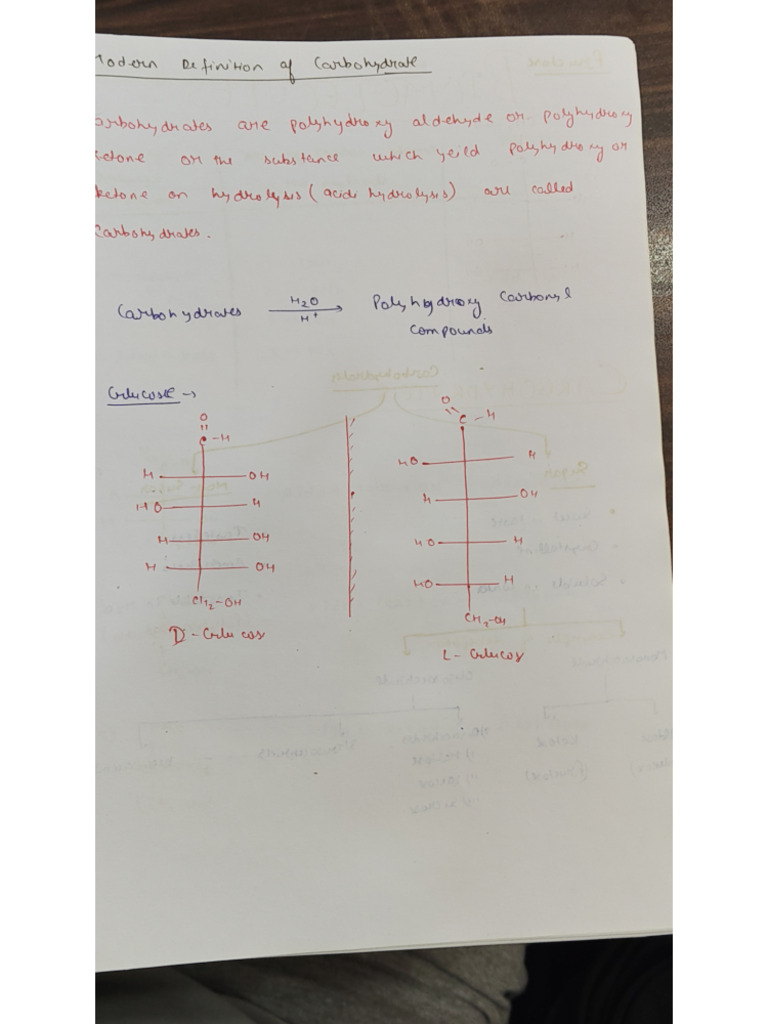 Modern Definition of Carbohydrate
Carbohydrates are polyhydroxy aldehyde or polyhydroxy
ketone or the substance which yeild polyhydroxy or
ketone on hydrolysis (acidi hydrolysis) are called
Carbohydrates.
Carbohydrates H2O H+ → Polyhydroxy Carbonyl
Compounds
Glucose →
O
C-H
H OH
HO H
H OH
H OH
CH2-OH
D-Glucos
O
C-H
HO H
H OH
HO H
HO H
CH2-OH
L-Glucos